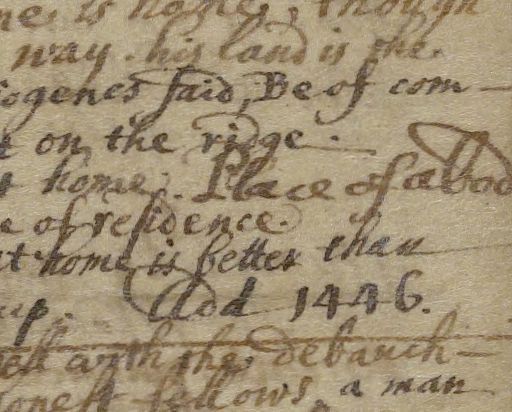 me is home, though
way. his land is the
iogenes said, Be of com-
on the ridge.
home. Place of abod
e of residence.
at home is better than
up. Add 1446.
well with the debauch-
honest fellows, a man